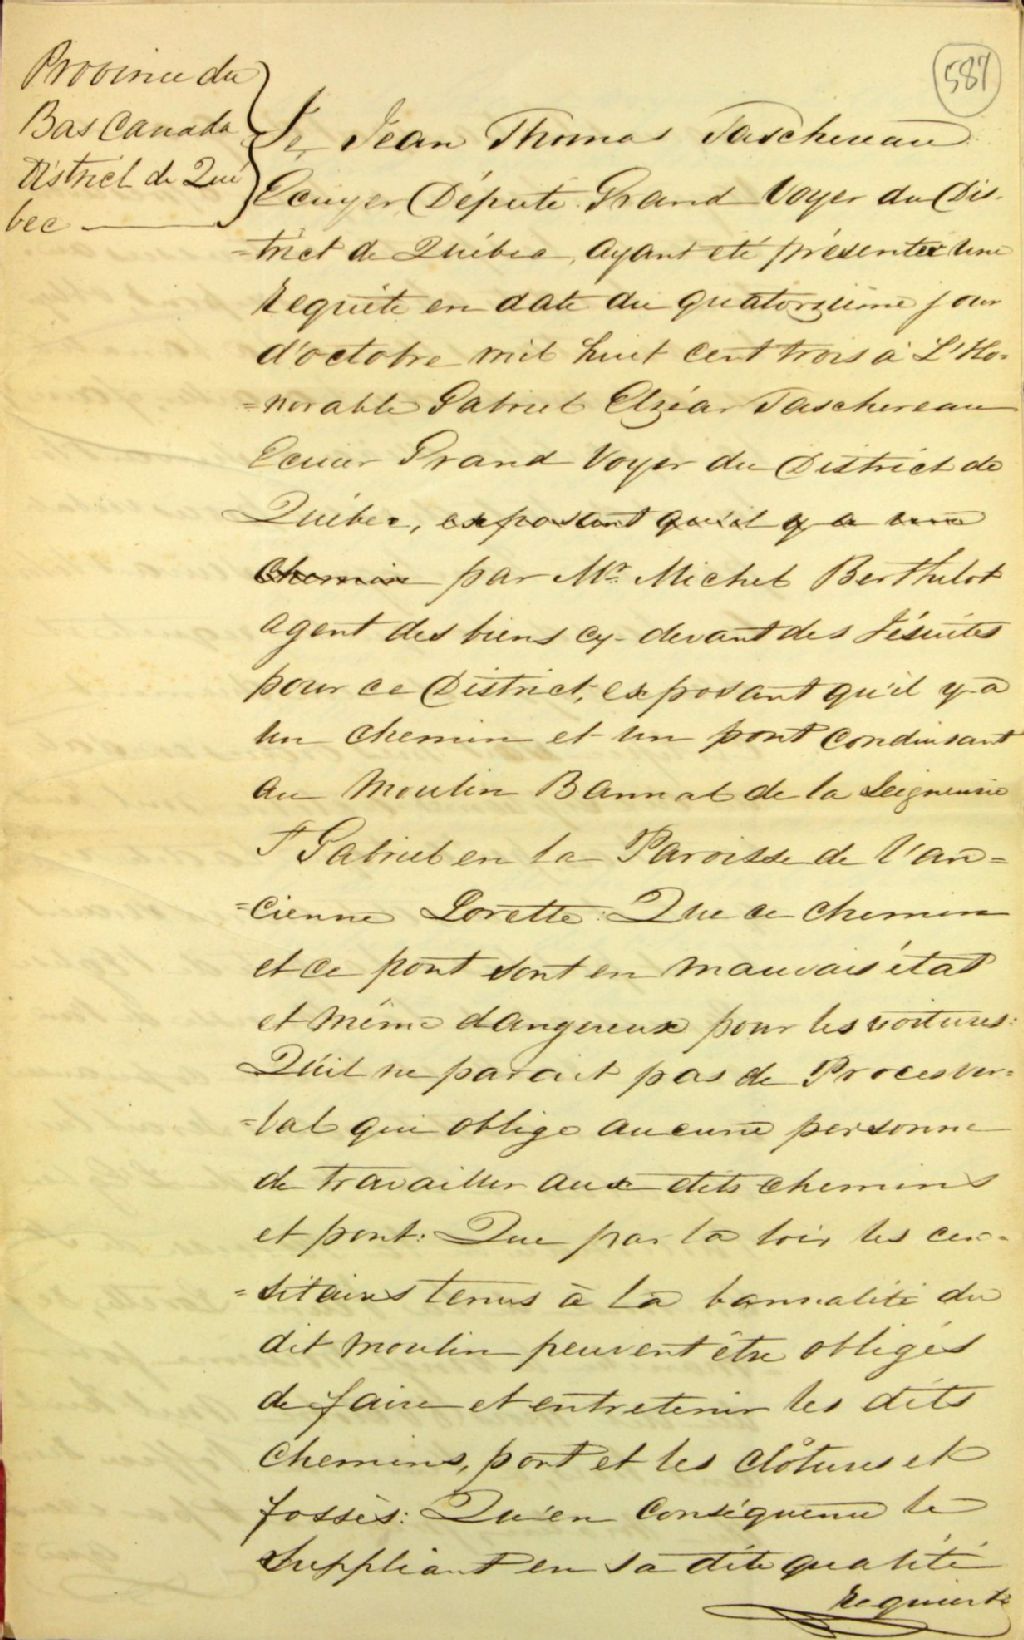 587
Province du
Bas Canada
District de Qué
bec
Je, Jean Thomas Taschereau
Ecuyer, Député Grand Voyer du Dis-
=trict de Québec, ayant été présentée une
Requête en date du quatorzième jour
d'octobre mil huit cent trois à L'Ho-
=norable Gabriel Elzéar Taschereau
Ecuier Grand Voyer du District de
Québec, exposant qu'il y a un
chemin par Mr. Michel Berthelot
agent des biens cy-devant des Jésuites
pour ce District, exposant qu'il y a
un chemin et un pont conduisant
au Moulin Bannal de la Seigneurie
St Gabriel en la Paroisse de l'an=
=cienne Lorette: Que ce chemin
et ce pont sont en mauvais état
et même dangereux pour les voitures:
Qu'il ne paroit pas de Procès ver=
=bal qui oblige aucune personne
de travailler aux dits chemins
et pont: Que par la loix les cen-
=sitaires tenus à la bannalité du
dit moulin peuvent être obligés
de faire et entretenir les dits
chemins, pont et les clôtures et
fossés: Qu'en conséquence le
Suppliant en sa dite qualité
requiert